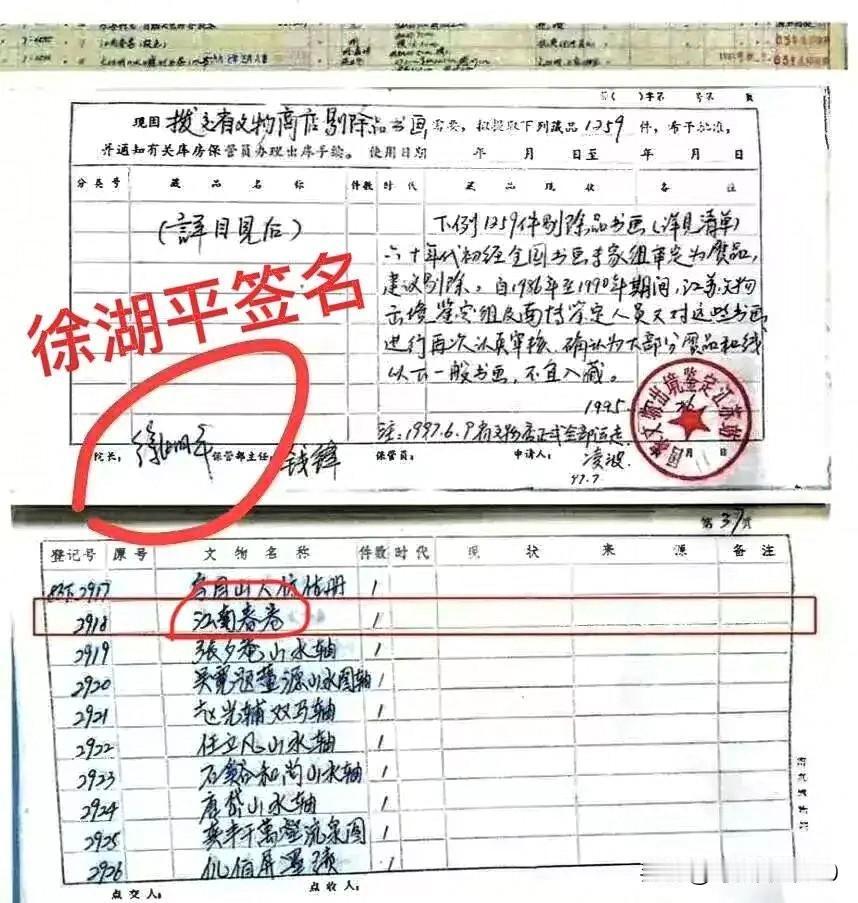 第（ ）字第 号 第 页
现因 拨交省文物商店剔除品书画 需要，拟提取下列藏品 1259 件，希予批准，
并通知有关库房保管员办理出库手续。 使用日期 年 月 日至 年 月 日
分类号 藏品名称 件数 时代 藏品现状 备注
（詳目見后）
下例1259件剔除品书画（详见清单）
六十年代初经全国书画专家组审定为赝品，
建议剔除。自1986年至1990年期间，江苏文物
出境鉴定组及南博鉴定人员又对这些书画
进行再次认真审核，确认为大部分赝品和线
以下一般书画，不宜入藏。
1995
注：1997.6.9 省文物店正式全部运走
徐湖平签名
院长： 徐湖平 保管部主任： 钱锋 保管员： 申请人： 凌波
97.7
国家文物出境鉴定江苏站
第37页
登记号 原号 文物名称 件数 时代 现状 来源 备注
2917 山人 册 1
2918 江南春卷 1
2919 張夕菴山水轴 1
2920 吴寛题董源山水图轴 1
2921 赵光辅双马轴 1
2922 任立凡山水轴 1
2923 石谿和尚山水轴 1
2924 唐岱山水轴 1
2925 奕丰千萬壑流泉图 1
2926 伊伯屏墨蹟 1
点交人： 点收人：